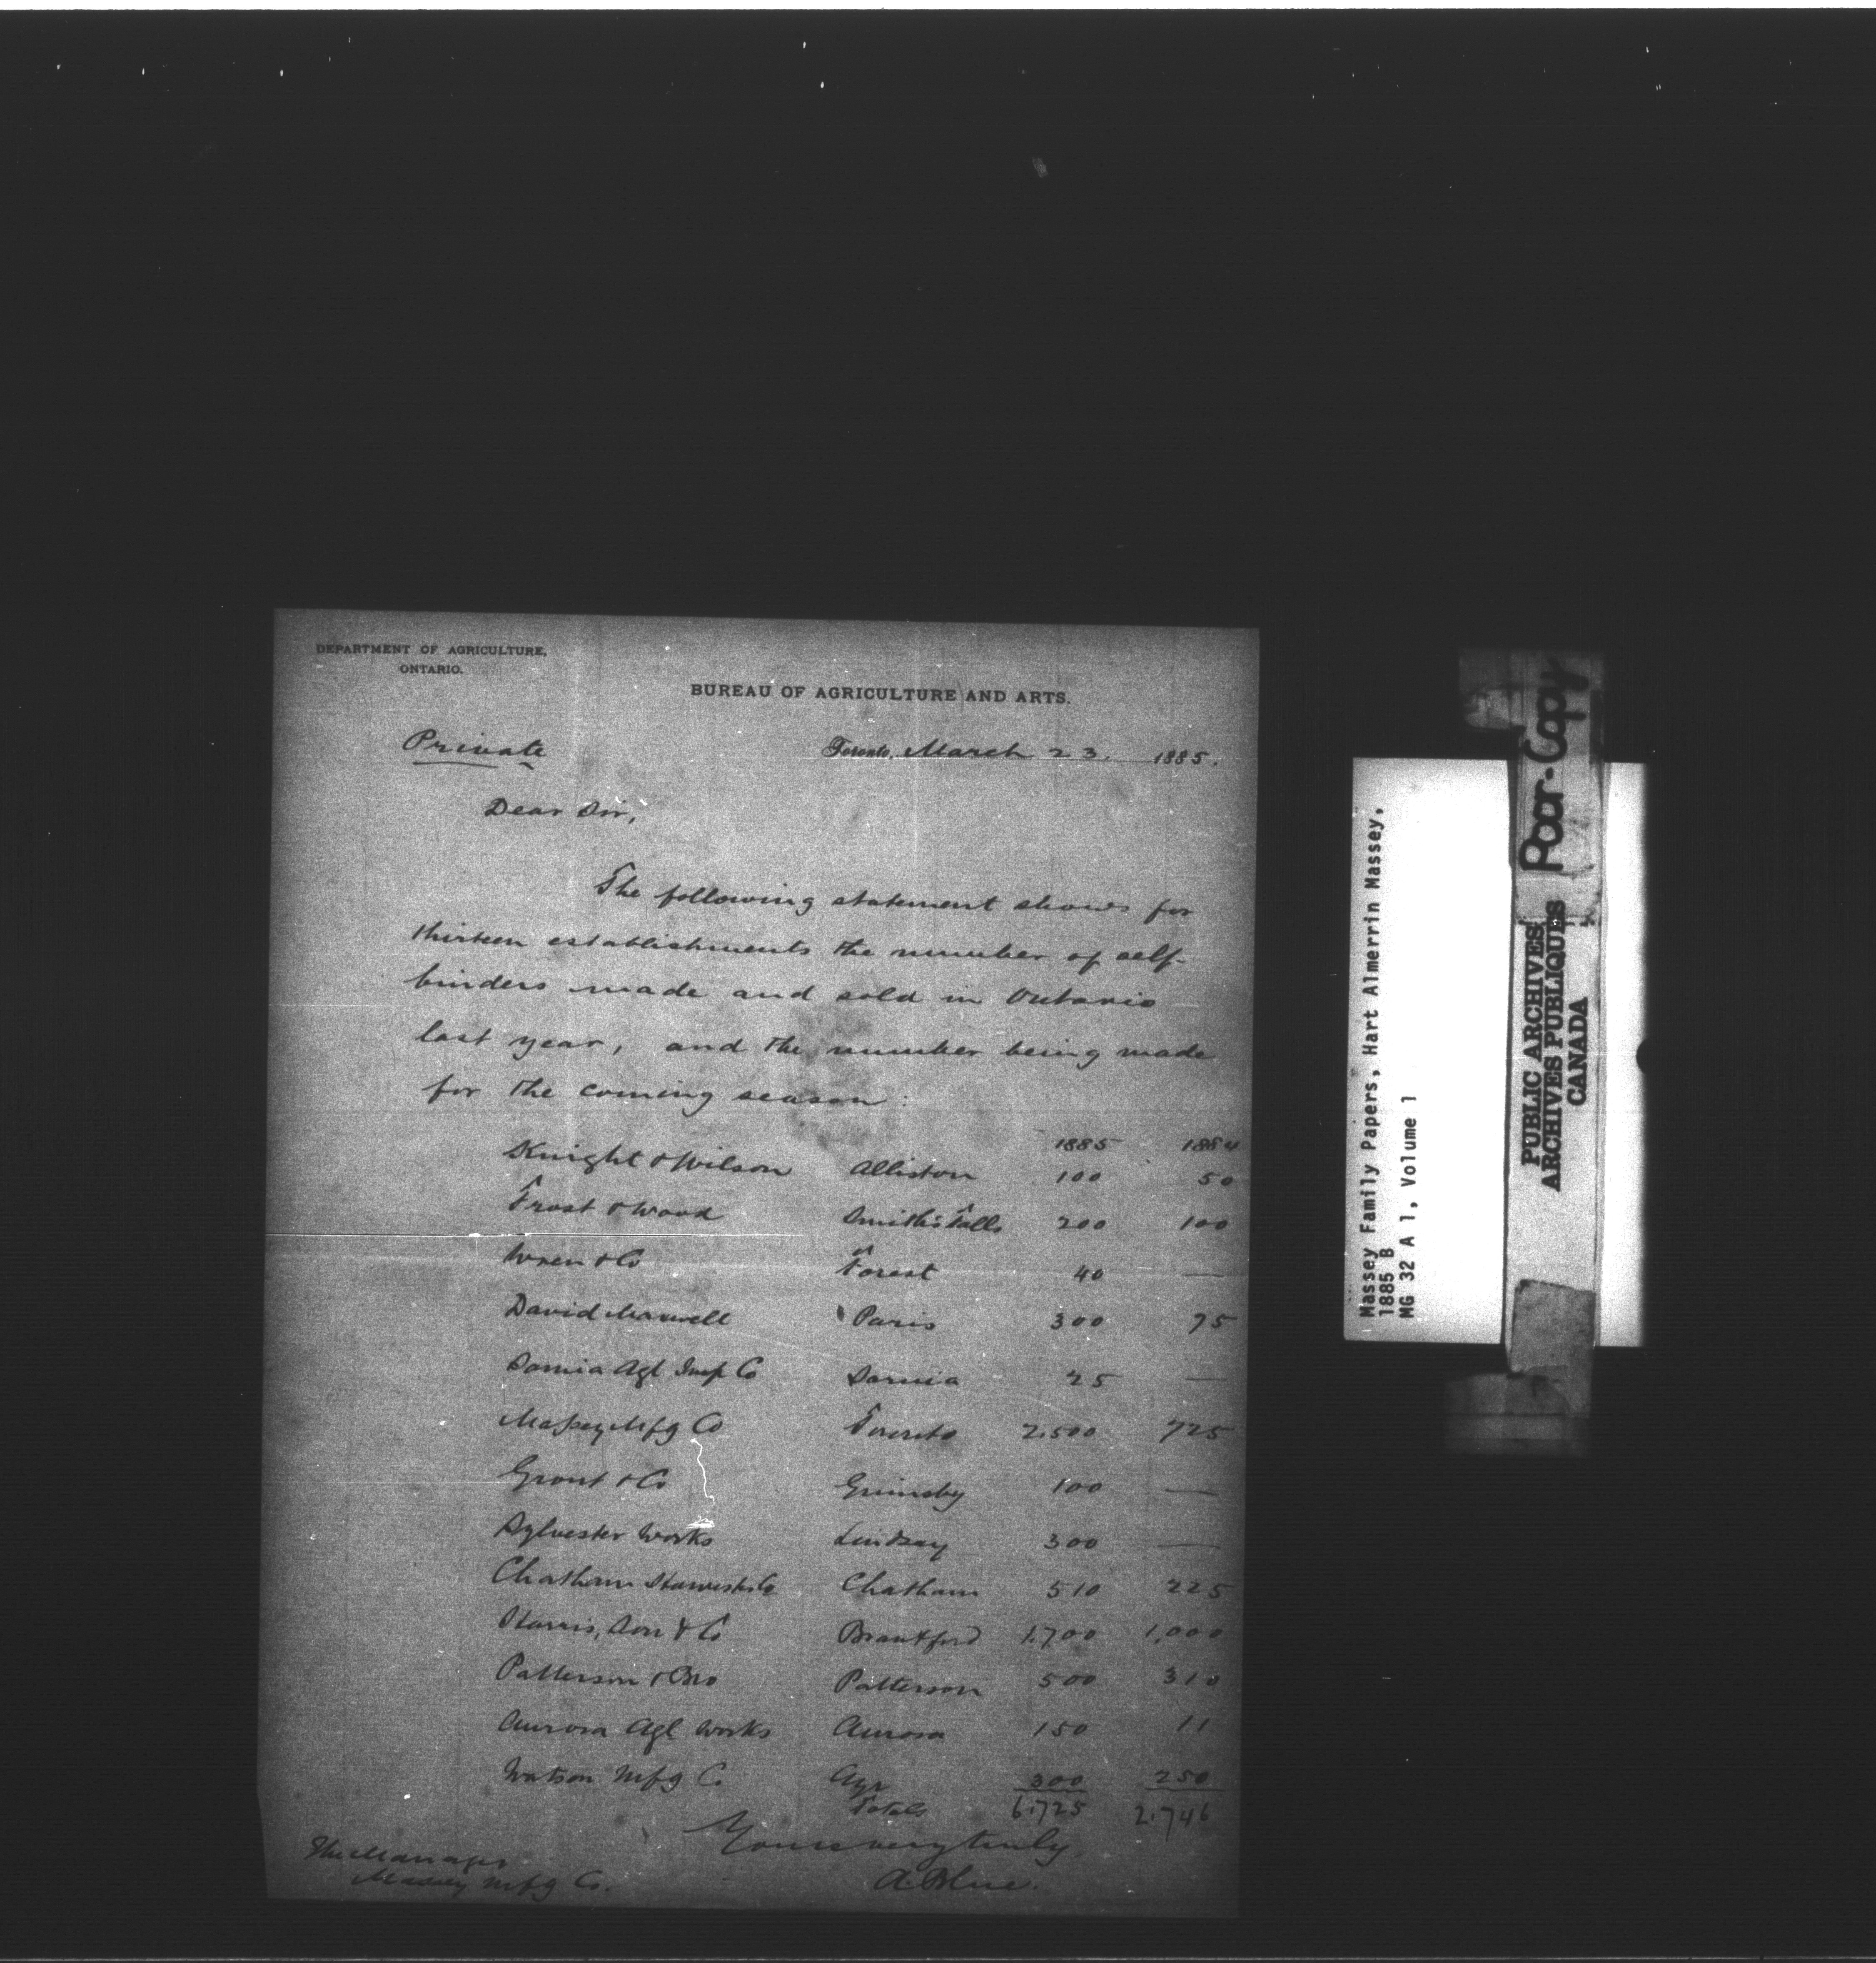 DEPARTMENT OF AGRICULTURE,
ONTARIO.
BUREAU OF AGRICULTURE AND ARTS.
Private
Toronto, March 23, 1885.
Dear Sir,
The following statement shows for
thirteen establishments the number of self-
binders made and sold in Ontario
last year, and the number being made
for the coming season:
1885 1884
Knight & Wilson Alliston 100 50
Frost & Wood Smith's Falls 200 100
Wren & Co Forest 40 —
David Maxwell Paris 300 75
Sarnia Agl Imp Co Sarnia 25 —
Massey Mfg Co Toronto 2,500 725
Grout & Co Grimsby 100 —
Sylvester Works Lindsay 300 —
Chatham Harvester Co Chatham 510 225
Harris, Son & Co Brantford 1,700 1,000
Patterson & Bro Patterson 500 310
Aurora Agl Works Aurora 150 11
Watson Mfg Co Ayr 300 250
Totals 6,725 2,746
Yours very truly
A. Blue.
The Manager
Massey Mfg Co.
Massey Family Papers, Hart Almerrin Massey,
1885 B
MG 32 A 1, Volume 1
PUBLIC ARCHIVES
ARCHIVES PUBLIQUES
CANADA
Poor-Copy